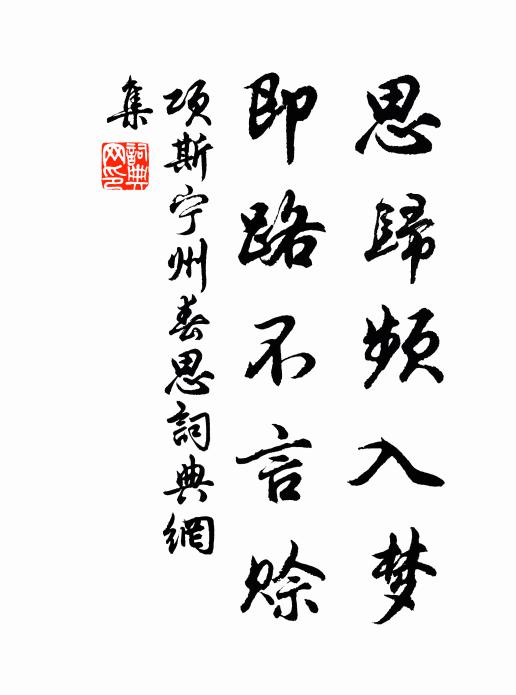 思歸频入梦
即路不言赊
项斯宁州春思詞典網
集
詞典网印